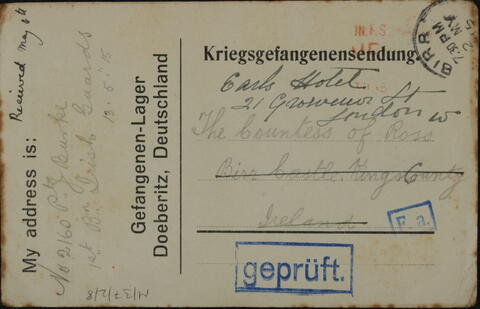 Received May 8th
My address is:
No 2160 Pte J Burke
1st Bn Irish Guards
13. 5. 15
Gefangenen-Lager
Doeberitz, Deutschland
M/37/2/8
Kriegsgefangenensendung.
BIRR
7.30 PM
Carls Hotel
21 Grosvenor St
London W
The Countess of Ross
Birr Castle Kings County
Ireland
F. a.
geprüft.